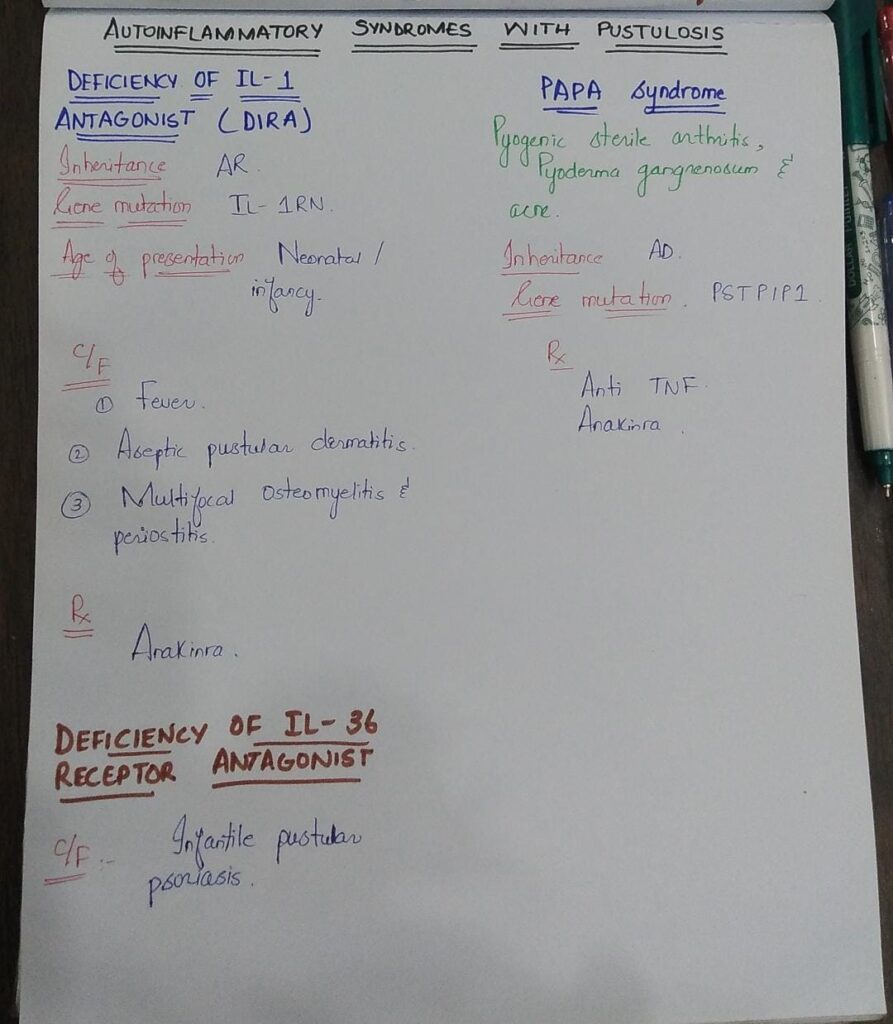 AUTOINFLAMMATORY SYNDROMES WITH PUSTULOSIS
DEFICIENCY OF IL-1
ANTAGONIST (DIRA)
Inheritance AR.
Gene mutation IL-1RN.
Age of presentation Neonatal /
infancy.
C/F
① Fever.
② Aseptic pustular dermatitis.
③ Multifocal Osteomyelitis &
periostitis.
Rx
Anakinra.
DEFICIENCY OF IL-36
RECEPTOR ANTAGONIST
C/F :- Infantile pustular
psoriasis.
PAPA Syndrome
Pyogenic sterile arthritis,
Pyoderma gangrenosum &
acne.
Inheritance AD.
Gene mutation. PSTPIP1
Rx
Anti TNF.
Anakinra.
DOLLAR POINTER